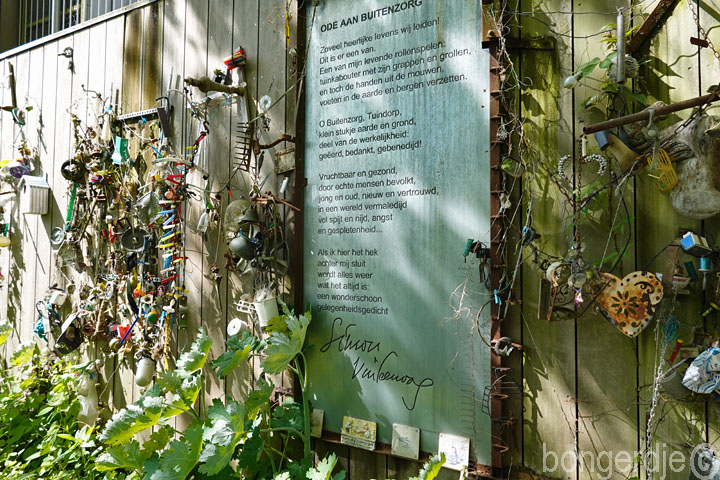 ODE AAN BUITENZORG
Zoveel heerlijke levens wij leiden!
Dit is er een van.
Een van mijn levende rollenspelen:
tuinkabouter met zijn grappen en grollen,
en toch de handen uit de mouwen,
voeten in de aarde en bergen verzetten.
O Buitenzorg, Tuindorp,
klein stukje aarde en grond,
deel van de werkelijkheid:
geëerd, bedankt, gebenedijd!
Vruchtbaar en gezond,
door echte mensen bevolkt,
jong en oud, nieuw en vertrouwd,
in een wereld vermaledijd
vol spijt en nijd, angst
en gespletenheid...
Als ik hier het hek
achter mij sluit
wordt alles weer
wat het altijd is:
een wonderschoon
gelegenheidsgedicht
Simon
Vinkenoog
bongerdje